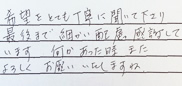 希望をとても丁寧に聞いて下さり
最後まで細かい配慮、感謝して
います 何かあった時また
よろしくお願いいたしますね